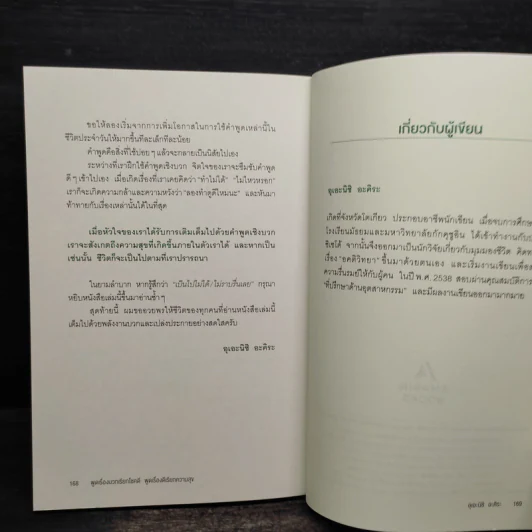 ขอให้ลองเริ่มจากการเพิ่มโอกาสในการใช้คำพูดเหล่านี้ใน
ชีวิตประจำวันให้มากขึ้นทีละเล็กทีละน้อย
คำพูดคือสิ่งที่ใช้บ่อยๆ แล้วจะกลายเป็นนิสัยไปเอง
ระหว่างที่เราฝึกใช้คำพูดเชิงบวก จิตใจของเราจะซึมซับคำพูด
ดีๆ เข้าไปเอง เมื่อเกิดเรื่องที่เราเคยคิดว่า "ทำไม่ได้" "ไม่ไหวหรอก"
เราก็จะเกิดความกล้าและความหวังว่า "ลองทำดูดีไหมนะ" และหันมา
ท้าทายกับเรื่องเหล่านั้นได้ในที่สุด
เมื่อหัวใจของเราได้รับการเติมเต็มไปด้วยคำพูดเชิงบวก
เราจะสังเกตถึงความสุขที่เกิดขึ้นภายในตัวเราได้ และหากเป็น
เช่นนั้น ชีวิตก็จะเป็นไปตามที่เราปรารถนา
ในยามลำบาก หากรู้สึกว่า "เป็นไปไม่ได้/ไม่ราบรื่นเลย" กรุณา
หยิบหนังสือเล่มนี้ขึ้นมาอ่านซ้ำๆ
สุดท้ายนี้ ผมขออวยพรให้ชีวิตของทุกคนที่อ่านหนังสือเล่มนี้
เต็มไปด้วยพลังงานบวกและเปล่งประกายอย่างสดใสครับ
อุเอะนิชิ อะคิระ
168 พูดเรื่องบวกเรียกโชคดี พูดเรื่องดีเรียกความสุข
เกี่ยวกับผู้เขียน
อุเอะนิชิ อะคิระ
เกิดที่จังหวัดโตเกียว ประกอบอาชีพนักเขียน เมื่อจบการศึกษา
โรงเรียนมัธยมและมหาวิทยาลัยกักคูชูอิน ได้เข้าทำงานกับบ
ชิเซโด้ จากนั้นจึงออกมาเป็นนักวิจัยเกี่ยวกับมุมมองชีวิต คิดท
เรื่อง "อคติวิทยา" ขึ้นมาด้วยตนเอง และเริ่มงานเขียนเพื่อส
ความรื่นรมย์ให้กับผู้คน ในปี พ.ศ. 2538 สอบผ่านคุณสมบัติการ
"ที่ปรึกษาด้านอุตสาหกรรม" และมีผลงานเขียนออกมามากมาย
อุเอะนิชิ อะคิระ 169